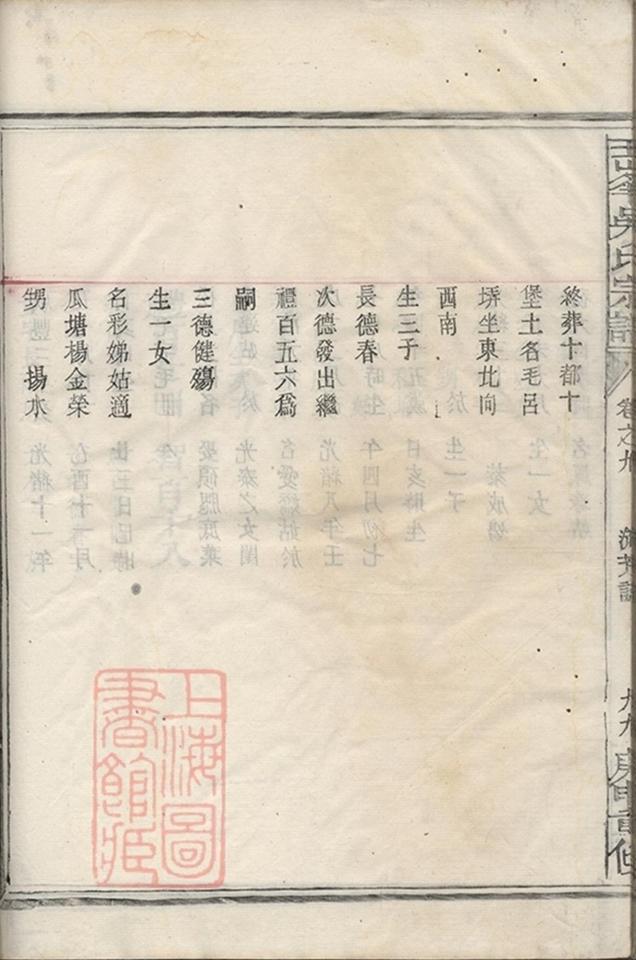 終葬十都十
堡土名毛呂
塝坐東北向
西南
生三子
長德春
次德發出繼
禮百五六爲
嗣
三德健殤
生一女
名彩娣姑適
瓜塘楊金榮
甥 楊水
吳氏宗譜
卷之九
九九
庚申重修
上海圖
書館藏